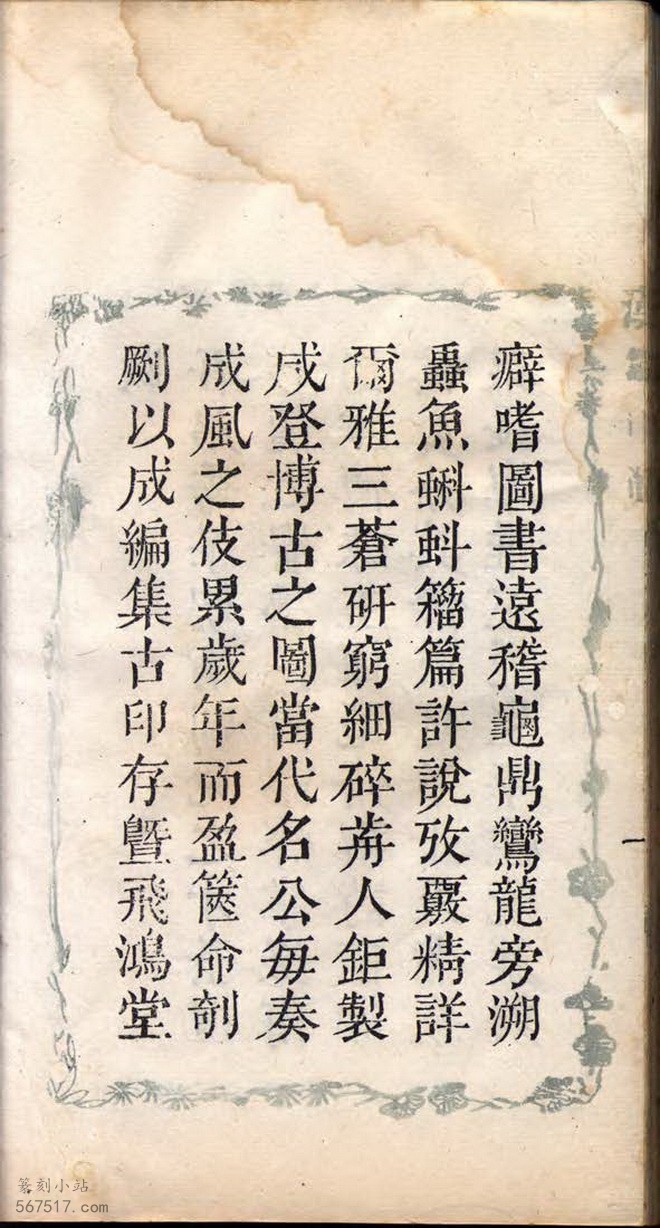 癖嗜圖書遠稽龜鼎鸞龍旁溯
蟲魚蝌蚪籀篇許說攷覈精詳
爾雅三蒼研窮細碎前人鉅製
咸登博古之圖當代名公每奏
成風之伎累歲年而盈篋命剞
劂以成編集古印存曁飛鴻堂
篆刻小站
567517.com